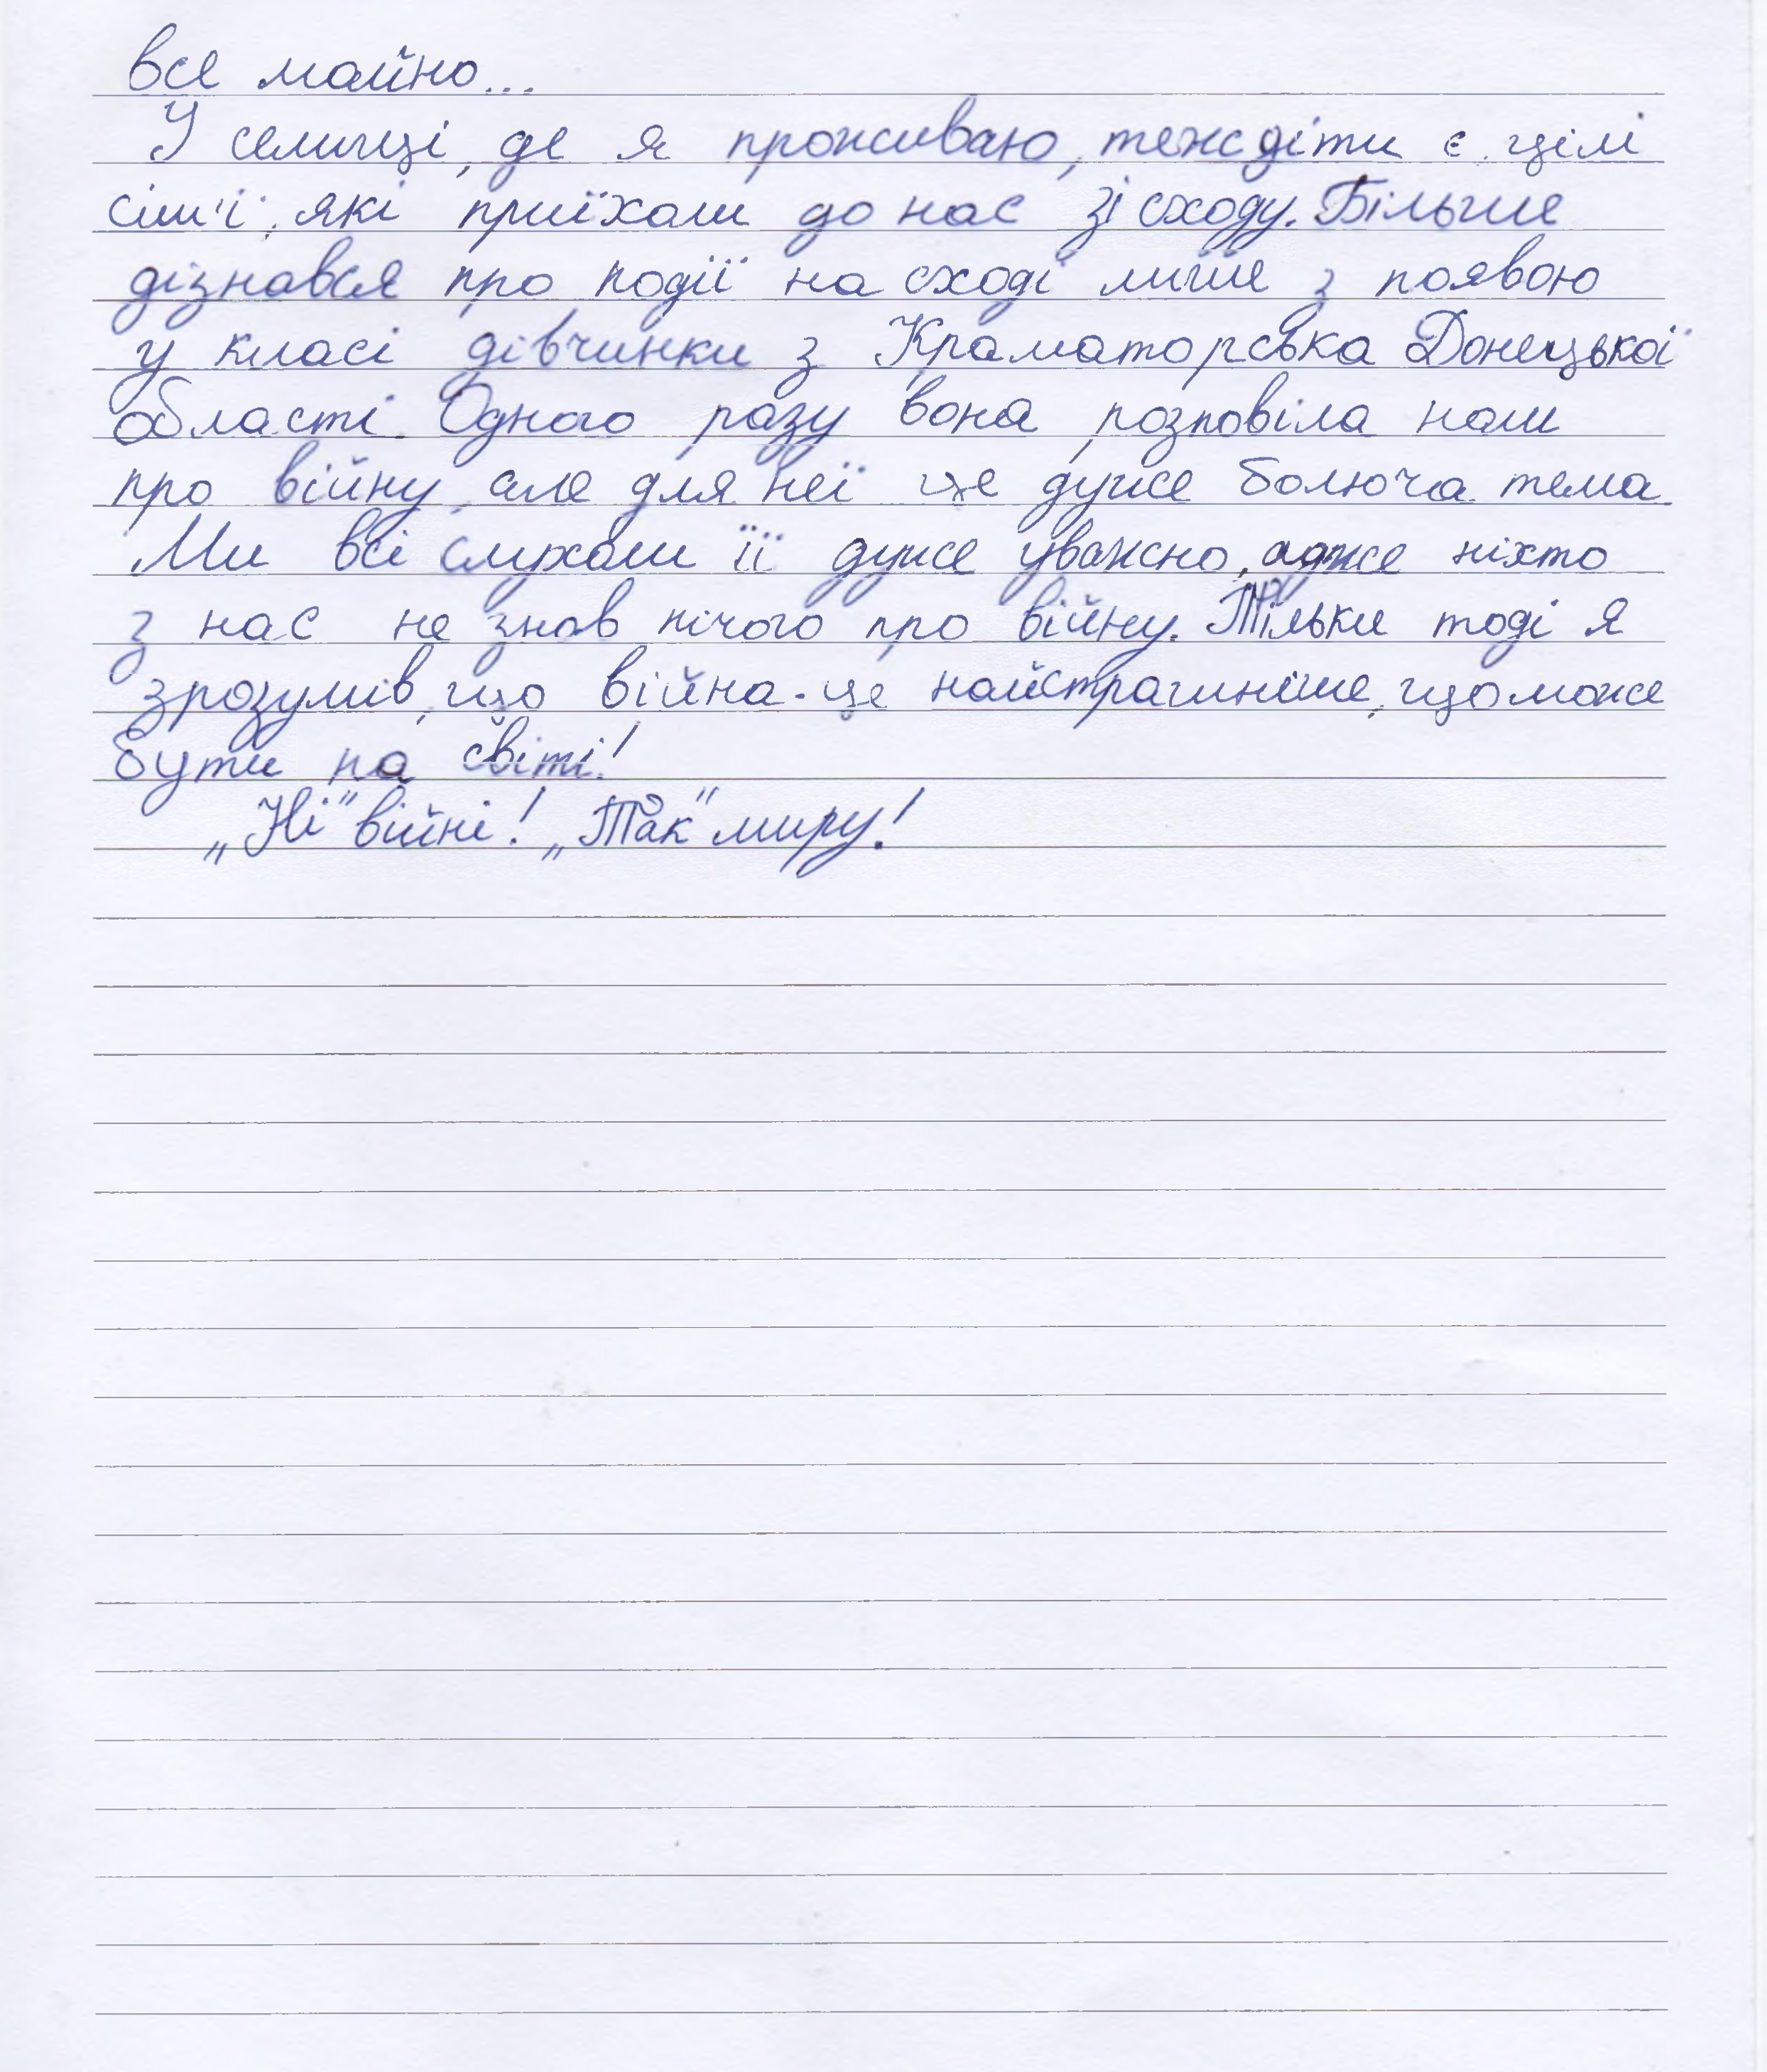 все майно...
У селищі, де я проживаю, теж діти є цілі
сім'ї, які приїхали до нас зі сходу. Більше
дізнався про події на сході лише з появою
у класі дівчинки з Краматорська Донецької
області. Одного разу вона розповіла нам
про війну, але для неї це дуже болюча тема.
Ми всі слухали її дуже уважно, адже ніхто
з нас не знав нічого про війну. Тільки тоді я
зрозумів, що війна - це найстрашніше, що може
бути на світі!
„Ні" війні! „Так" миру!